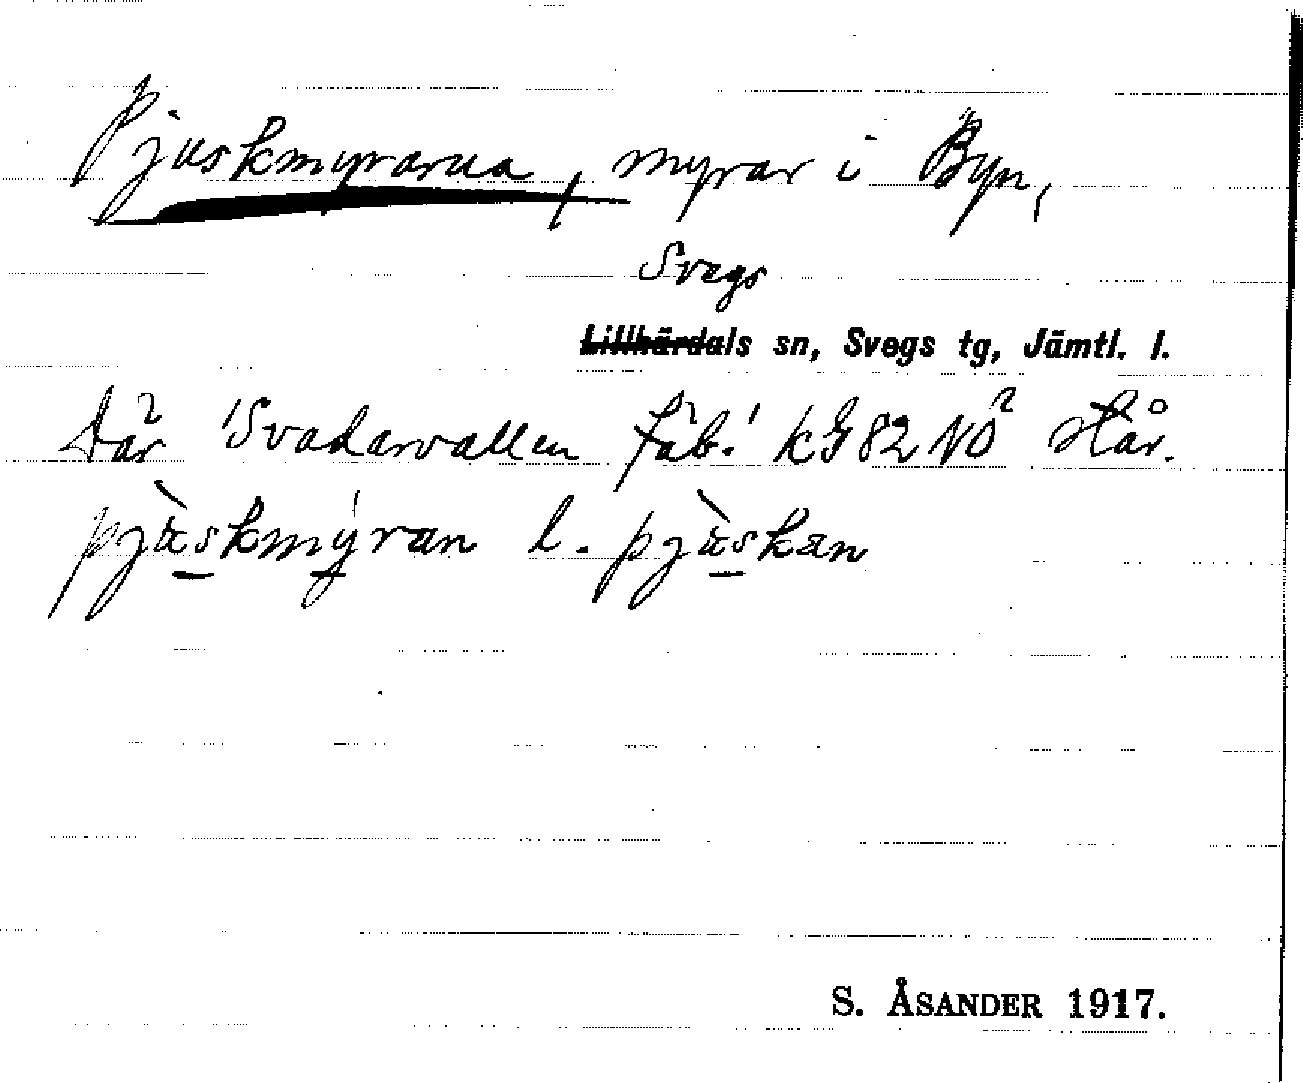 Pjuskmyrarna, myrar i Byn,
Svegs
Lillhärdals sn, Svegs tg, Jämtl. l.
Där 'Svadarvallen fäb.' kG 82 NO Hår.
pju̇skmýran l. pju̇skan
S. ÅSANDER 1917.